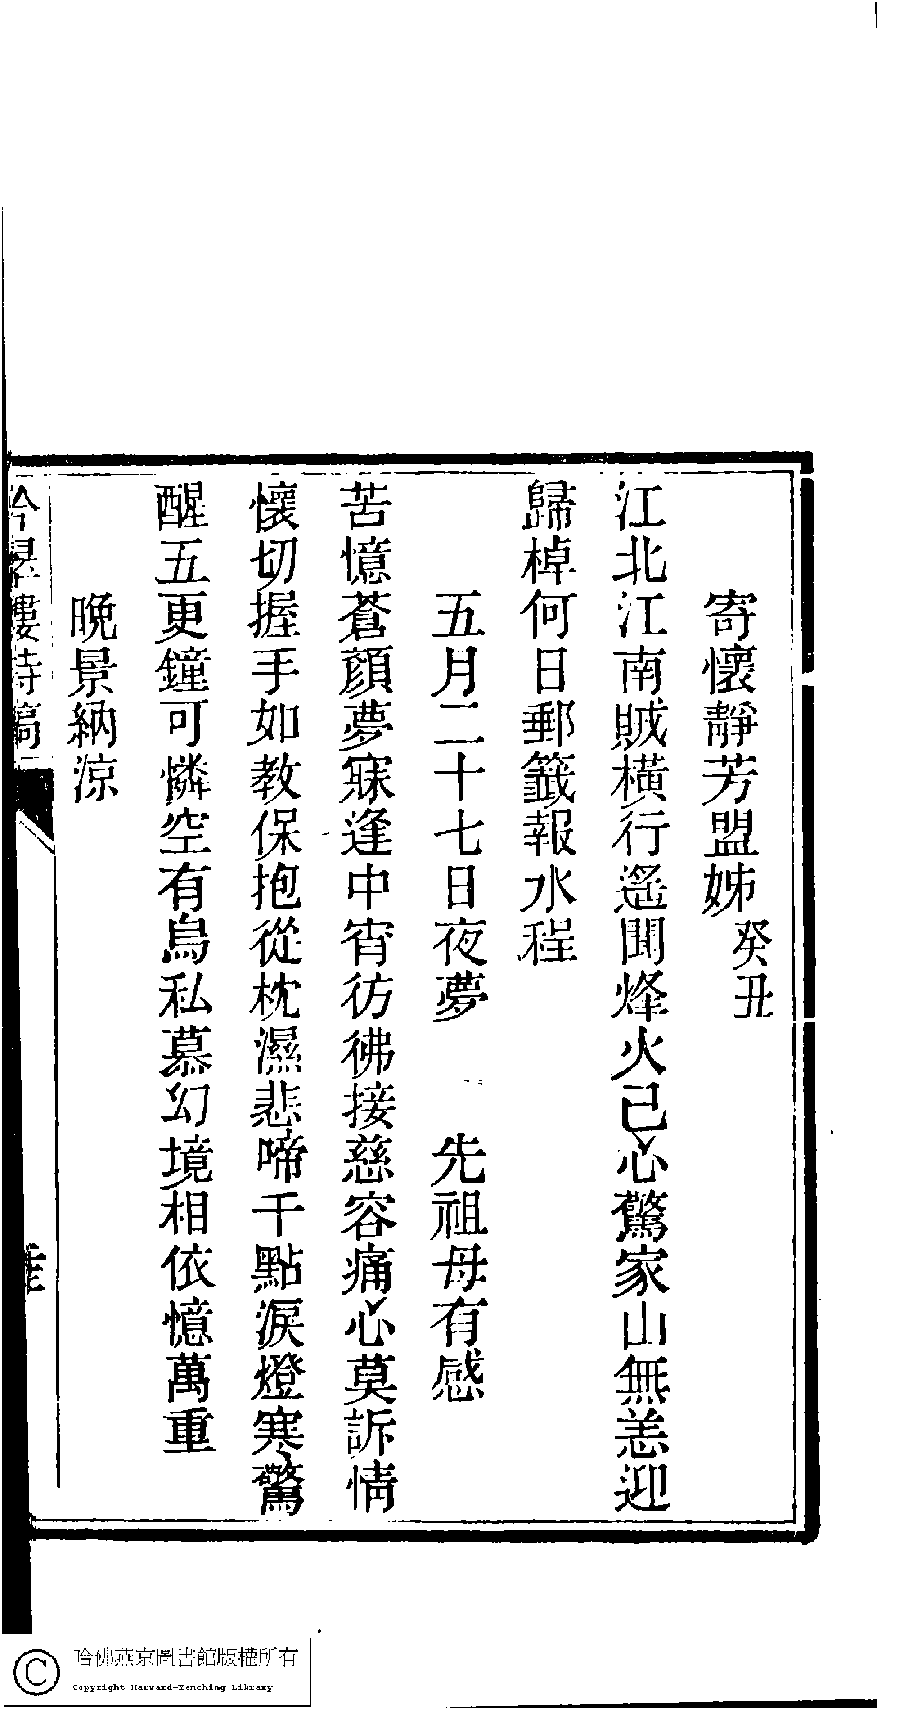 寄懷靜芳盟姊癸丑
江北江南賊橫行遙聞烽火已心驚家山無恙迎
歸棹何日郵籤報水程
五月二十七日夜夢 先祖母有感
苦憶蒼顏夢寐逢中宵彷彿接慈容痛心莫訴情
懷切握手如教保抱從枕濕悲啼千點淚燈寒驚
醒五更鐘可憐空有烏私慕幻境相依憶萬重
晚景納涼
樓詩稿
哈佛燕京圖書館版權所有
Copyright Harvard-Yenching Library